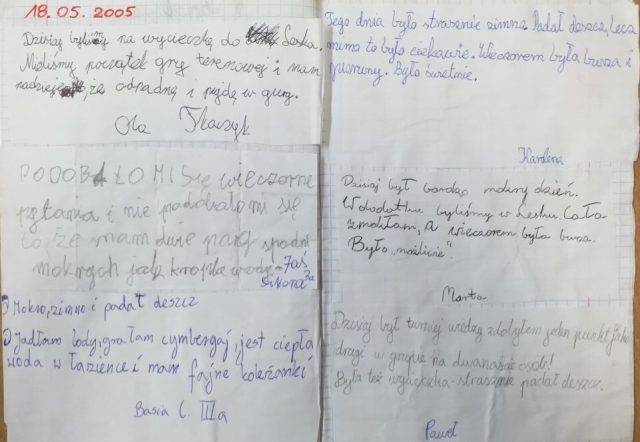 18.05.2005
Dzisiaj byliśmy na wycieczkę do Leska.
Mieliśmy początek gry terenowej i mam
nadzieję, że odpadnę i pójdę w góry.
Ola Tkaczyk
PODOBAŁO MI Się wieczorne
pytania i nie podobało mi się
to że mam dwie pary spodni
mokrych jak kropla wody.
Jaś
Sikora 3a
1) Mokro, zimno i padał deszcz
2) Jadłam lody, grałam cymbergaj, jest ciepła
woda w łazience i mam fajne koleżanki
Basia C. IIIa
Tego dnia było strasznie zimno. Padał deszcz, Lecz
mimo to było ciekawie. Wieczorem była burza i
pioruny. Było świetnie.
Karolina
Dzisiaj był bardzo mokry dzień.
W dodatku byliśmy w Lesku. Cała
zmokłam, a wieczorem była burza.
Było „możliwie".
Marta
Dzisiaj był turniej wiedzy zdobyłem jeden punkt jako
drugi w grupie na dwanaście osób!
Była też wycieczka - strasznie padał deszcz.
Paweł